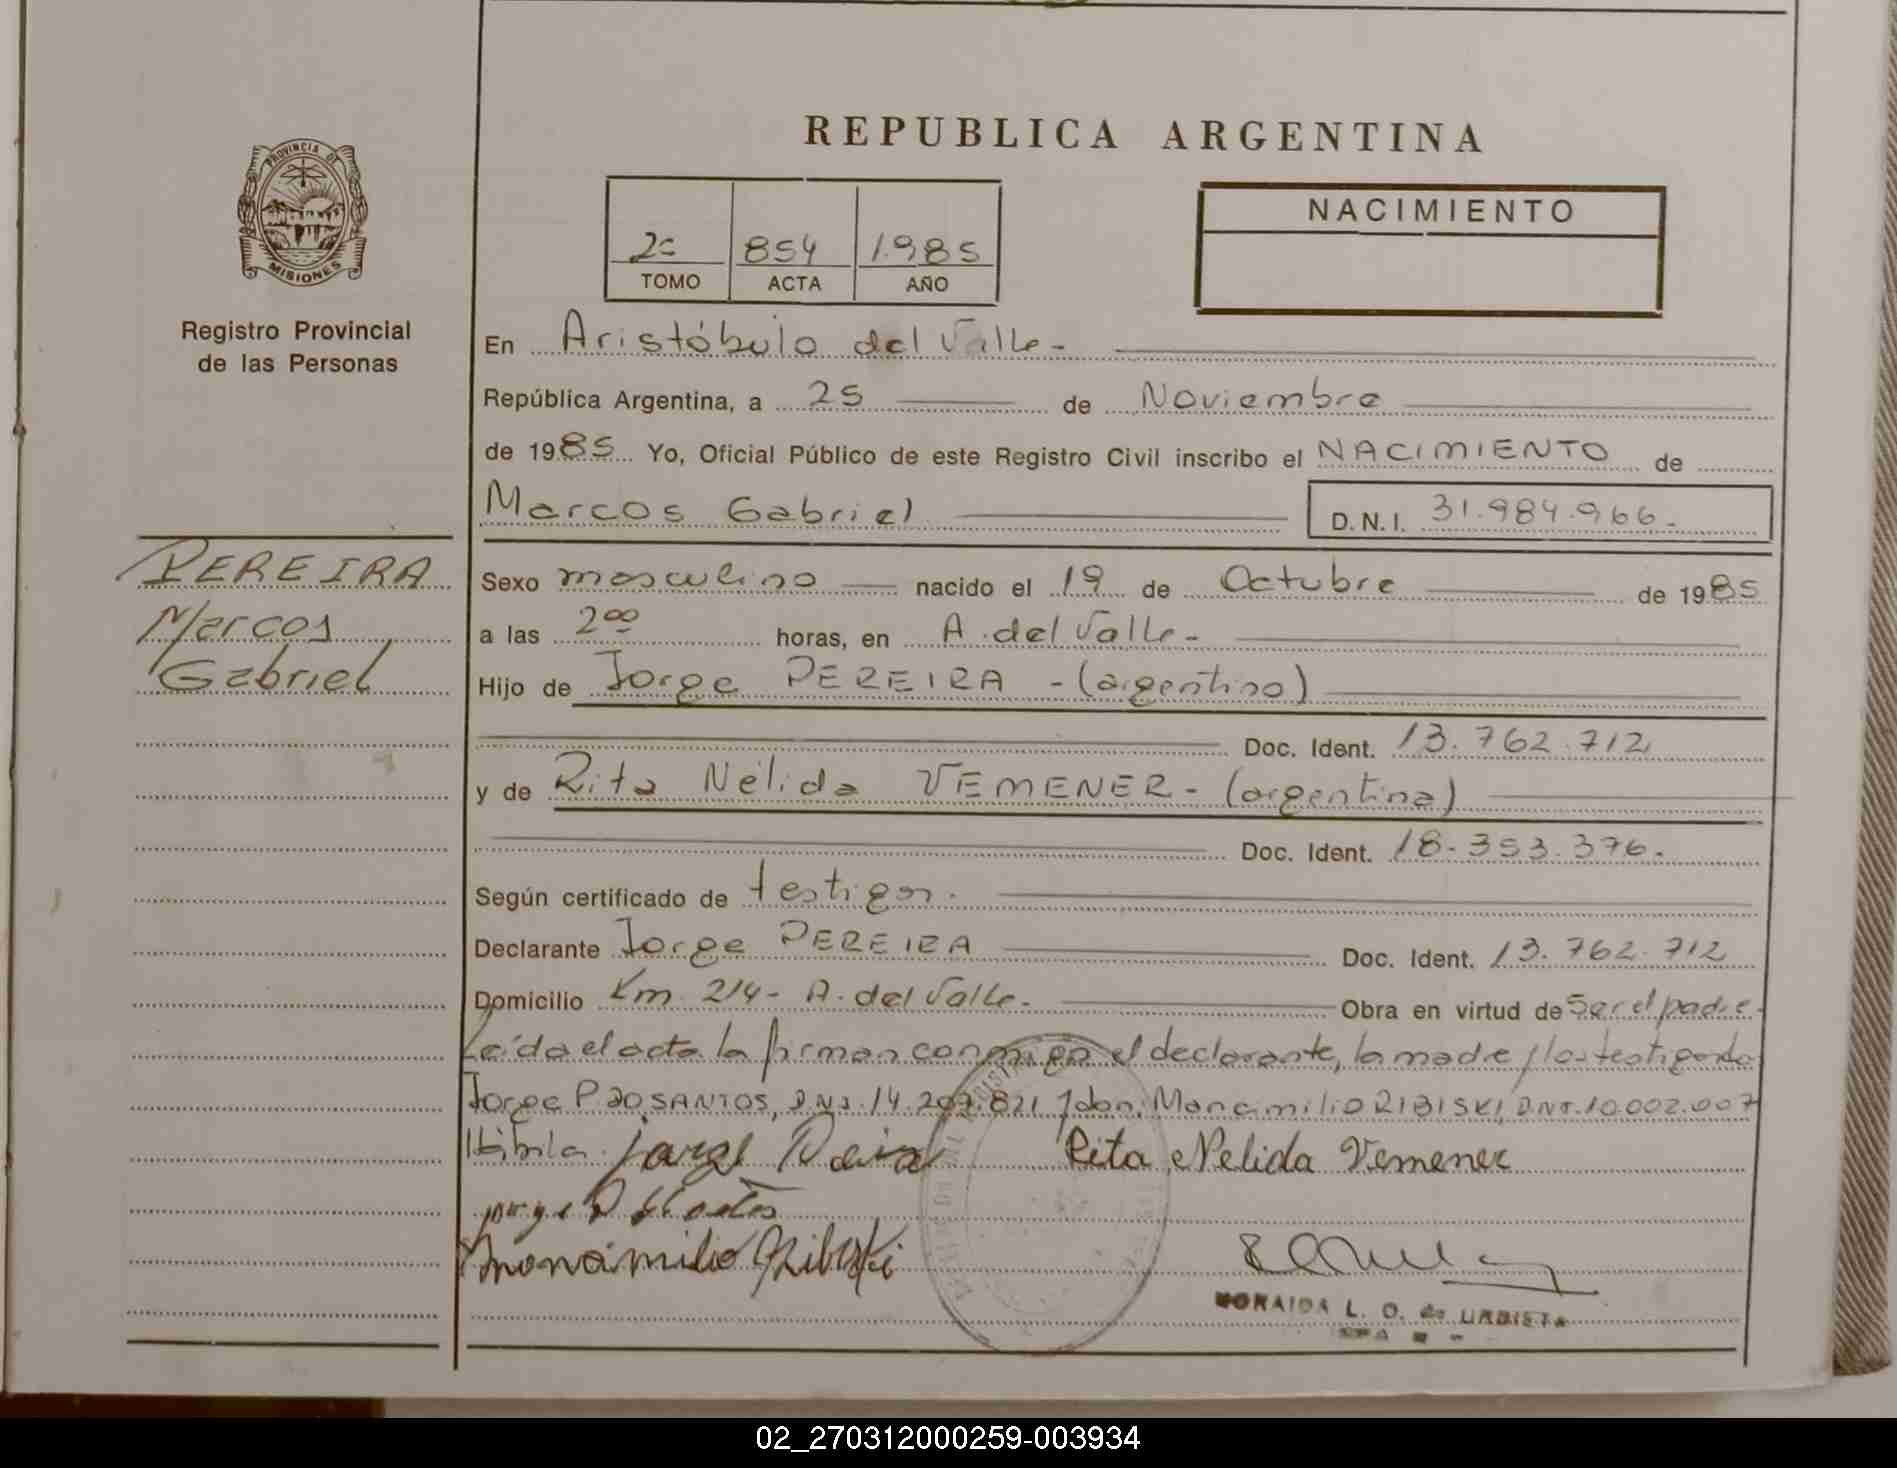 REPUBLICA ARGENTINA
PROVINCIA DE
MISIONES
Registro Provincial
de las Personas
2º 854 1.985
TOMO ACTA AÑO
NACIMIENTO
En Aristóbulo del Valle-
República Argentina, a 25 de Noviembre
de 1985 Yo, Oficial Público de este Registro Civil inscribo el NACIMIENTO de
Marcos Gabriel D.N.I. 31.984.966.-
PEREIRA
Marcos
Gabriel
Sexo masculino nacido el 19 de Octubre de 1985
a las 2⁰⁰ horas, en A. del Valle-
Hijo de Jorge PEREIRA -(argentino)
Doc. Ident. 13.762.712
y de Rita Nélida VEMENER-(argentina)
Doc. Ident. 18.353.376.
Según certificado de testigos.
Declarante Jorge PEREIRA Doc. Ident. 13.762.712
Domicilio Km 214- A. del Valle- Obra en virtud de Ser el padre-
Leída el acta la firman conmigo el declarante, la madre y los testigos
Jorge DOS SANTOS, D.N.I. 14.207.821 RIBISKI, DNI. 10.002.007
Rita Nelida Vemener
MORAIDA L. O. de URBISTA
02_270312000259-003934